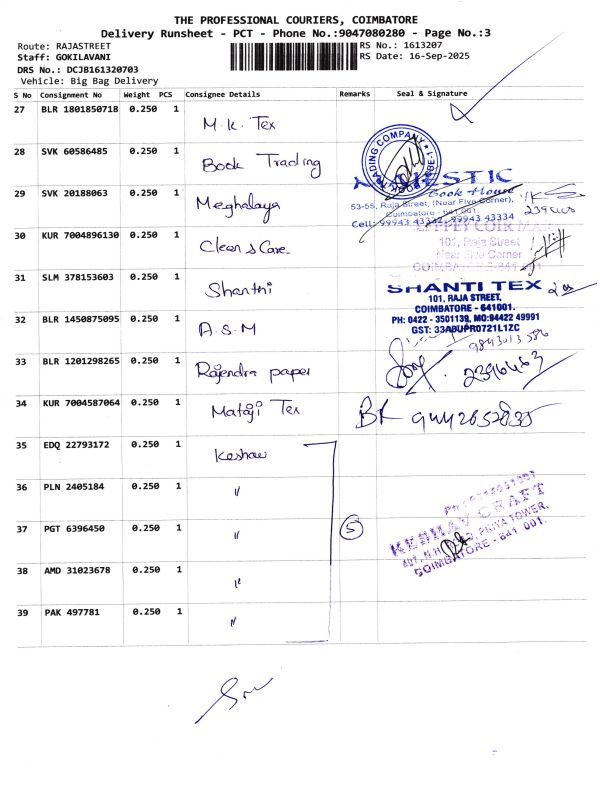 THE PROFESSIONAL COURIERS, COIMBATORE
Delivery Runsheet - PCT - Phone No.:9047080280 - Page No.:3
Route: RAJASTREET
RS No.: 1613207
Staff: GOKILAVANI
RS Date: 16-Sep-2025
DRS No.: DCJB161320703
Vehicle: Big Bag Delivery
S No Consignment No Weight PCS Consignee Details Remarks Seal & Signature
27 BLR 1801850718 0.250 1 M.K. Tex
28 SVK 60586485 0.250 1 Book Trading
TRADING COMPANY
MAJESTIC
Book House
53-55, Raja Street, (Near Five Corner),
Coimbatore - 641 001.
Cell: 99943 43332, 99943 43334
29 SVK 20188063 0.250 1 Meghalaya
30 KUR 7004896130 0.250 1 Clean & Care
101, Raja Street
Near Five Corner
31 SLM 378153603 0.250 1 Shanthi
SHANTI TEX
101, RAJA STREET,
COIMBATORE - 641001.
PH: 0422 - 3501139, MO:94422 49991
GST: 33ABUPR0721L1ZC
32 BLR 1450875095 0.250 1 A.S.M
9843013586
33 BLR 1201298265 0.250 1 Rajendra paper
2396463
34 KUR 7004587064 0.250 1 Mataji Tex
BK 9442652835
35 EDQ 22793172 0.250 1 Keshav
36 PLN 2405184 0.250 1 "
37 PGT 6396450 0.250 1 " 5
KESHAV CRAFT
PRIYA TOWER,
COIMBATORE - 641 001.
38 AMD 31023678 0.250 1 "
39 PAK 497781 0.250 1 "